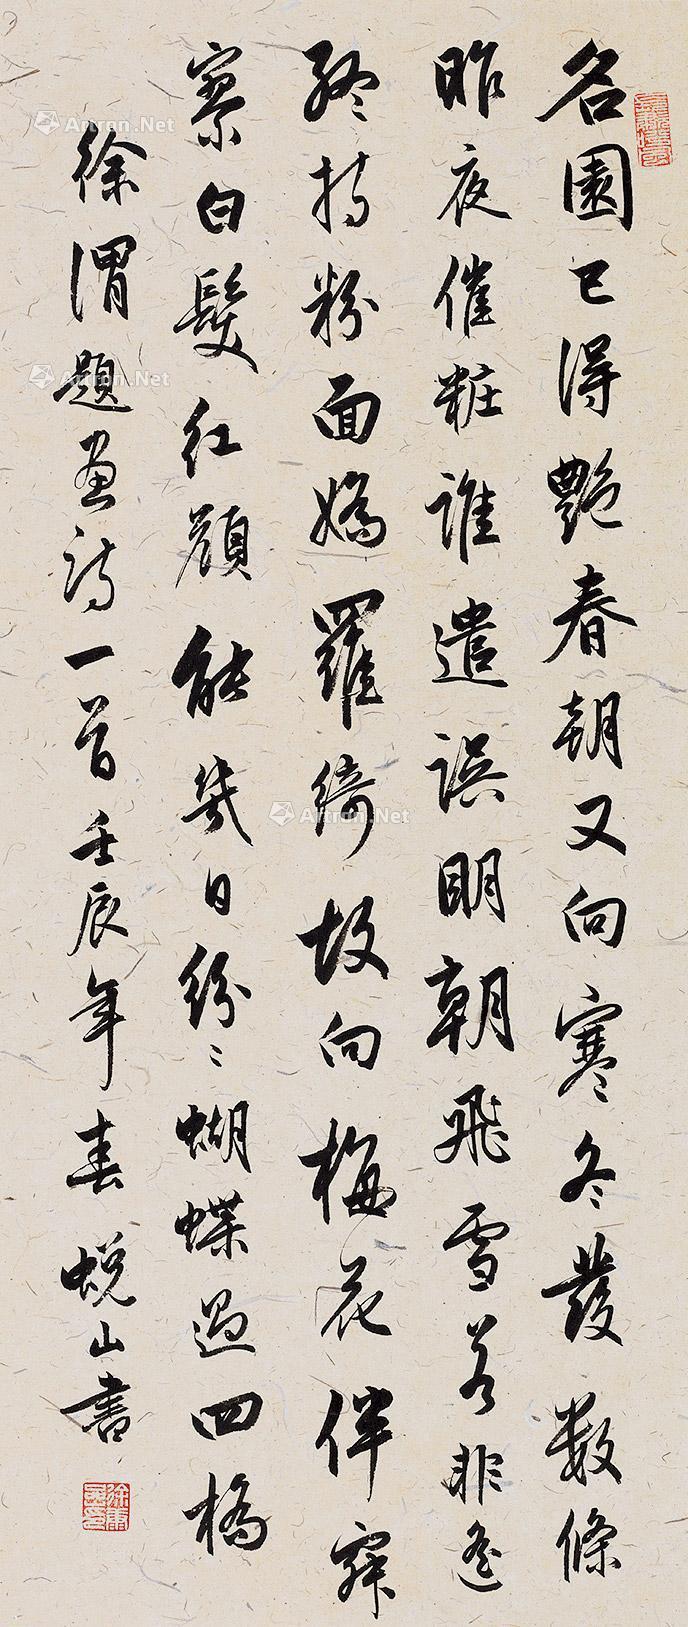 名園已得艷春朝又向寒冬發數條
昨夜催粧誰遣誤明朝飛雪若非遙
終持粉面嬌羅綺故向梅花伴寂
寮白髮紅顏能幾日紛〻蝴蝶過四橋
徐渭題畫詩一首壬辰年春蜕山書
Artron.Net
Artron.Net
Artron.Net
Artron.Net
Artron.Net